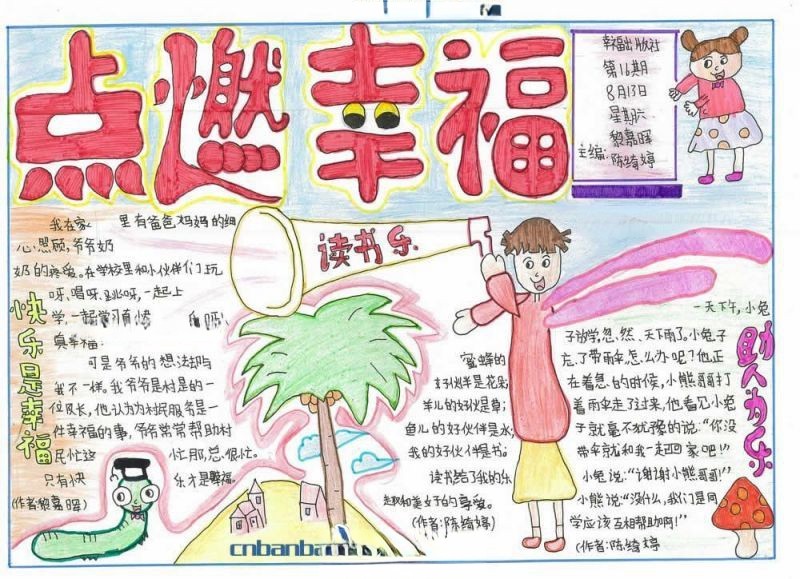 点燃幸福
幸福出版社
第16期
8月13日
星期六
黎嘉晖
主编:陈绮婷
读书乐
快乐是幸福
我在家 里有爸爸,妈妈的细
心照顾,爷爷奶
奶的疼爱。在学校里和小伙伴们玩
呀、唱呀、跳呀,一起上
学,一起学习
真幸福.
可是爷爷的想法却与
我不一样。我爷爷是村里的一
位队长,他认为为村民服务是一
件幸福的事,爷爷常常帮助村
民忙这 忙那,总很忙。
只有小快 乐才是幸福。
(作者:黎嘉晖)
蜜蜂的
好伙伴是花朵;
羊儿的好伙伴是草;
鱼儿的好伙伴是水;
我的好伙伴是书;
读书给了我的乐
趣和美好的享受。
(作者:陈绮婷)
助人为乐
一天下午,小兔
子放学,忽、然、天下雨了。小兔子
忘了带雨伞怎么办呢?他正
在着急的时候,小熊哥哥打
着雨伞走了过来,他看见小兔
子就毫不犹豫的说:“你没
带伞就和我一起回家吧!”
小兔说:“谢谢小熊哥哥!”
小熊说:“没什么,我们是同
学应该互相帮助啊!”
(作者:陈绮婷
cnbanba